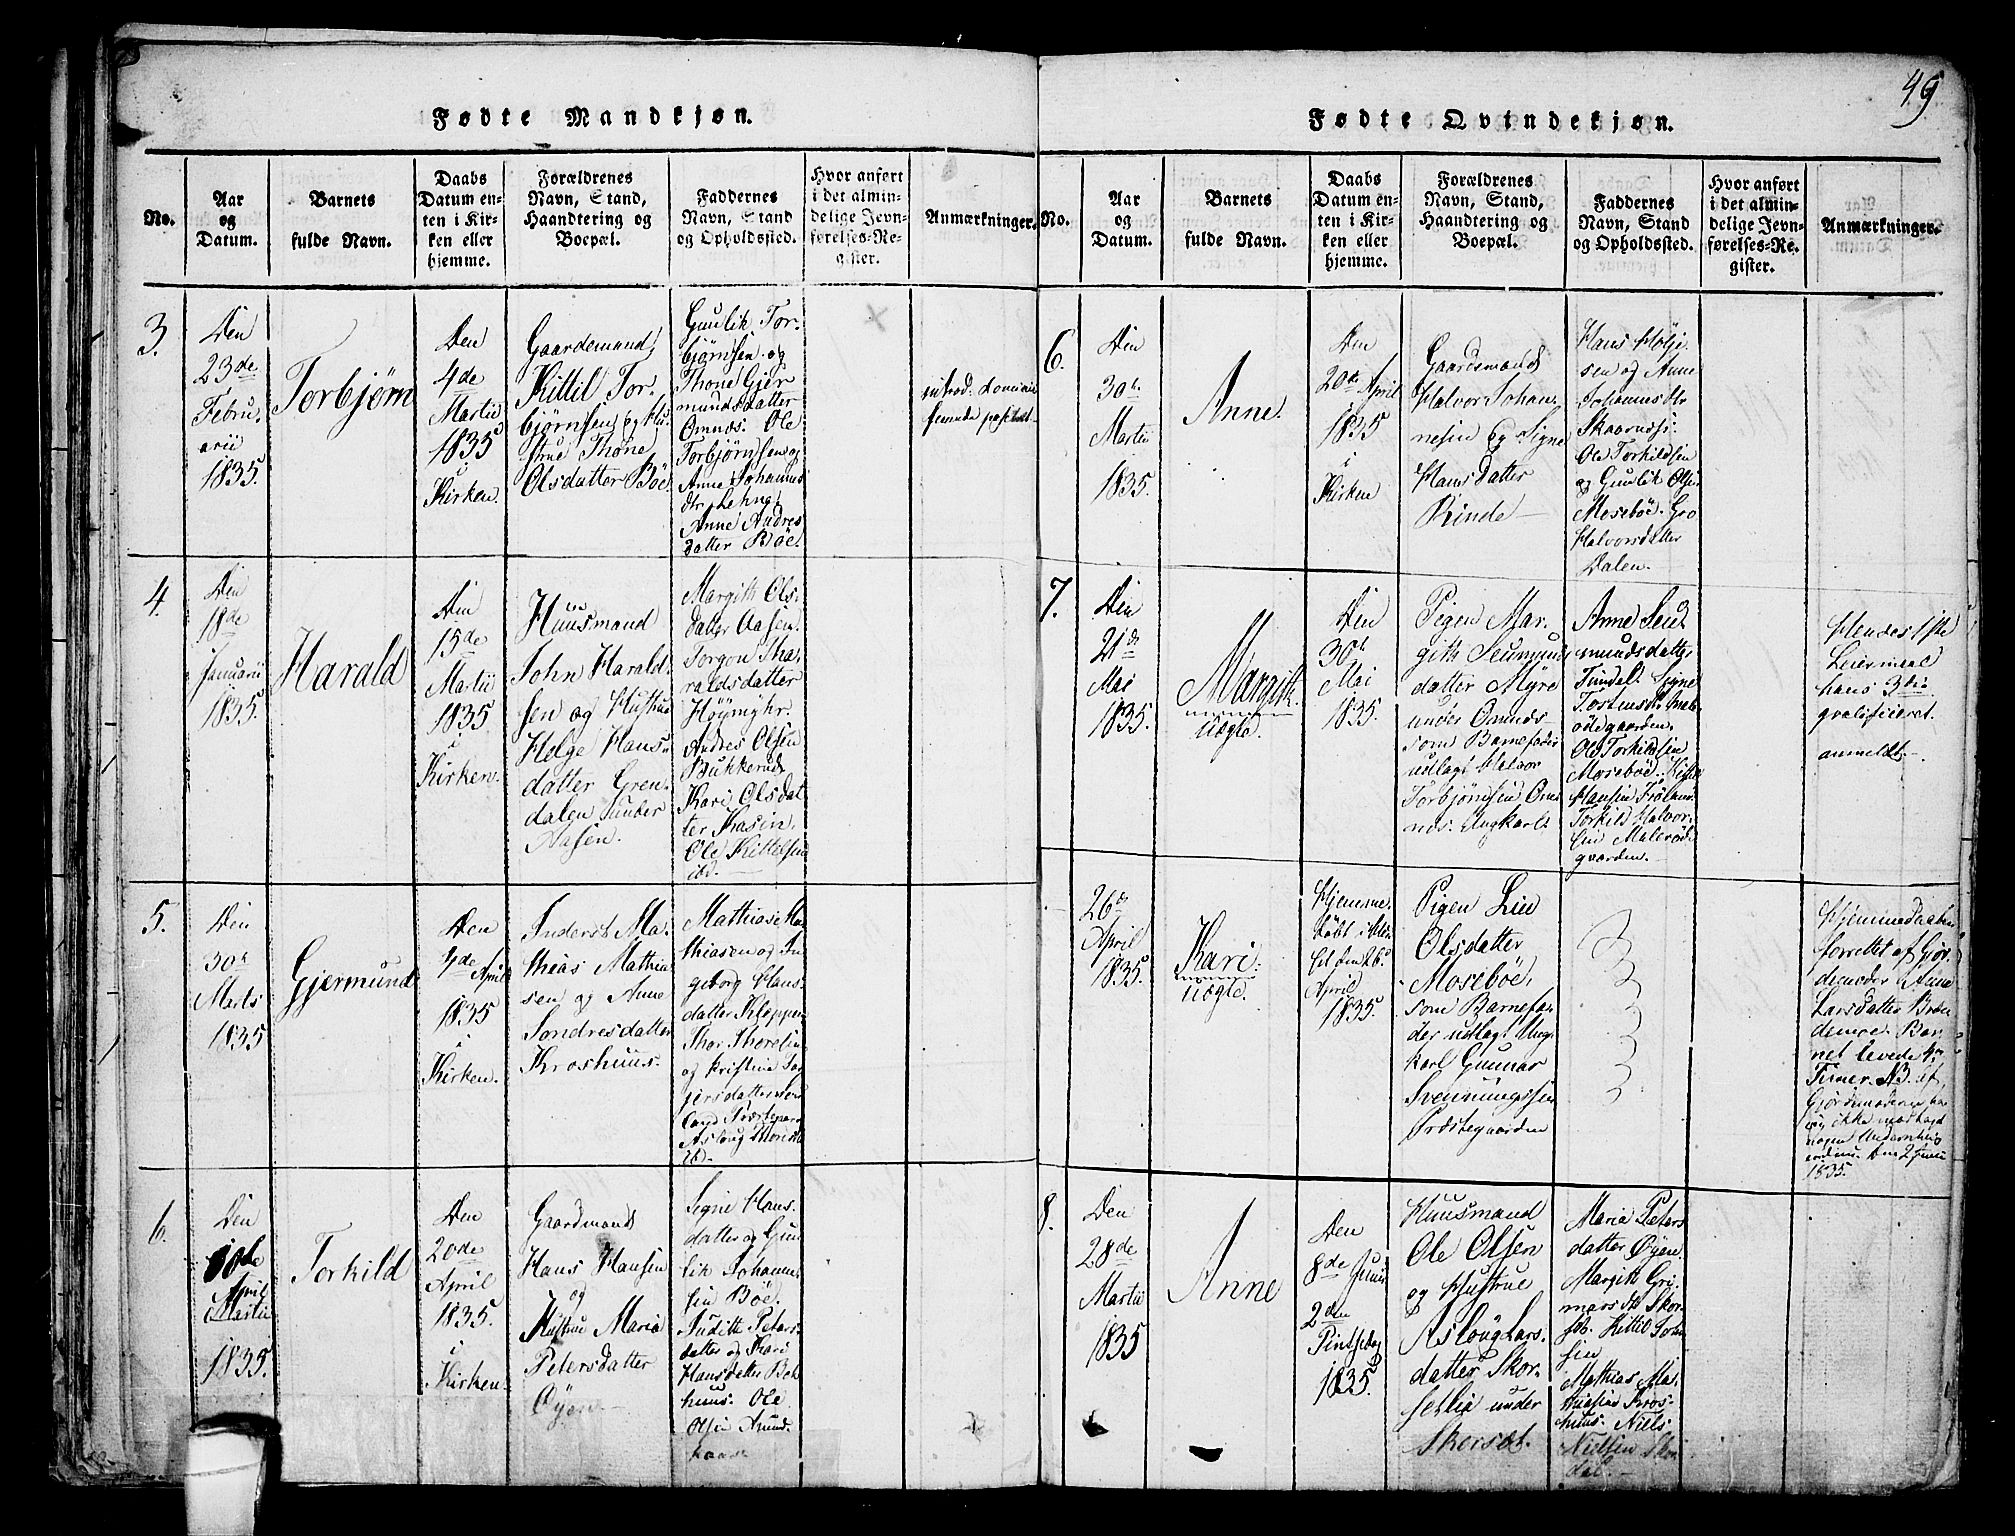 49
Fødte Mandkjøn.
No.
Aar
og
Datum.
Barnets
fulde Navn.
Daabs
Datum en-
ten i Kir-
ken eller
hjemme.
Forældrenes
Navn, Stand,
Haandtering og
Boepæl.
Faddernes
Navn, Stand
og Opholdssted.
Hvor anført
i det almin-
delige Jevn-
førelses-Re-
gister.
Anmærkninger.
3.
Den
23de
Febru
arii
1835.
Torbjørn
Den
4de
Martii
1835
i
Kirken.
Gaardemand
Kittil Tor-
bjørnsen og Hu-
strue Thone
Olsdatter Böe.
Guulik Tor-
bjørnsen og
Thone Gjer
mundsdatter
Omnes. Ole
Torbjørnsen og
Anne Johannes
dtr
Anne Andres
datter Böe.
4.
Den
18de
Januarii
1835.
Harald
Den
15de
Martii
1835
i
Kirken.
Huusmand
John Harald-
sen og Hustrue
Helge Hans-
datter Gren-
dalen under
Aasen.
Margith Ols
datter Aasen.
Torgon Ha-
raldsdatter
Andres Olsen
Bukkerud
Kari Olsdat
ter Aasen.
Ole Kittelsen
ibd.
5.
Den
30te
Marts
1835
Gjermund
Den
4de April
1835
i
Kirken.
Inderst Ma-
thias Mathia
sen og Anne
Sondresdatter
Kroshuus.
Mathias Ma-
thiasen og In
geborg Hans-
datter Kleppen
Thor Thoresen
og Kristine Tor
jersdatter
Aslaug
6.
Den
April
Martii
1835.
Torkild
Den
20de
April
1835.
i
Kirken.
Gaardmand
Hans Hansen
og
Hustrue Maria
Petersdatter
Øyen.
Signe Hans-
datter og Guu
lik Johannes
sen Böe.
Judith Peters-
datter og Kari
Hansdatter Boe
huus. Ole
Olsen
Fødte Qvindekjøn.
No.
Aar
og
Datum.
Barnets
fulde Navn.
Daabs
Datum en-
ten i Kir-
ken eller
hjemme.
Forældrenes
Navn, Stand,
Haandtering og
Boepæl.
Faddernes
Navn, Stand
og Opholdssted.
Hvor anført
i det almin-
delige Jevn-
førelses-Re-
gister.
Anmærkninger.
6.
Den
30te
Martii
1835.
Anne.
Den
20de April
1835
i
Kirken
Gaardsmand
Halvor Johan-
nesen og Signe
Hansdatter
Rinde
Hans Hølje
sen og Anne
Johannesdtr
Ole Torkildsen
og Guulik Olsen
Mosebøe. Gro
Halvorsdatter
Dalen.
7.
Den
21de
Mai
1835.
Margith.
uægte.
Den
30te
Mai
1835.
Pigen Mar-
gith Seumund
datter Myre
under Omnes
som Barnefader
udlagt Halvor
Torbjørnsen Om
nes. Ungkarl
Anne Seu
mundsdatter
Tindel. Signe
Ole Torkildsen
Mosebøe.
Hansen
Torkild Halvor-
sen
gaarden.
Hendes 1ste
Leiermaal
hans 3die
qvalificeret.
anmeldt.
26de
April
1835.
Kari:
uægte.
Hjemme
døbt i
April
1835.
Pigen Liv
Olsdatter
Mosebøe,
som Barnefa-
der udlagt Ung
karl Gunnar
Svenningssen
Præstegaarden
Hjemmedaaben
forrettet af Gjor
demoder Anne
Larsdatter
Bar
net levede
Timer. NB.
Gjordemoderen har
ikke modtaget
nogen
1835.
8.
Den
28de
Martii
1835
Anne
Den
8de Junii
2den
Pintsedag
1835.
Huusmand
Ole Olsen
og Hustrue
Aslaug Lars-
datter Skor-
sellia under
Skorset.
Maria Peters
datter Øyen
Margith Gri
mars dtr Skor-
Kittel Joh
sen
Mathias Ma-
thiesen Kros-
huus. Niels
Nielsen Skor
dal.